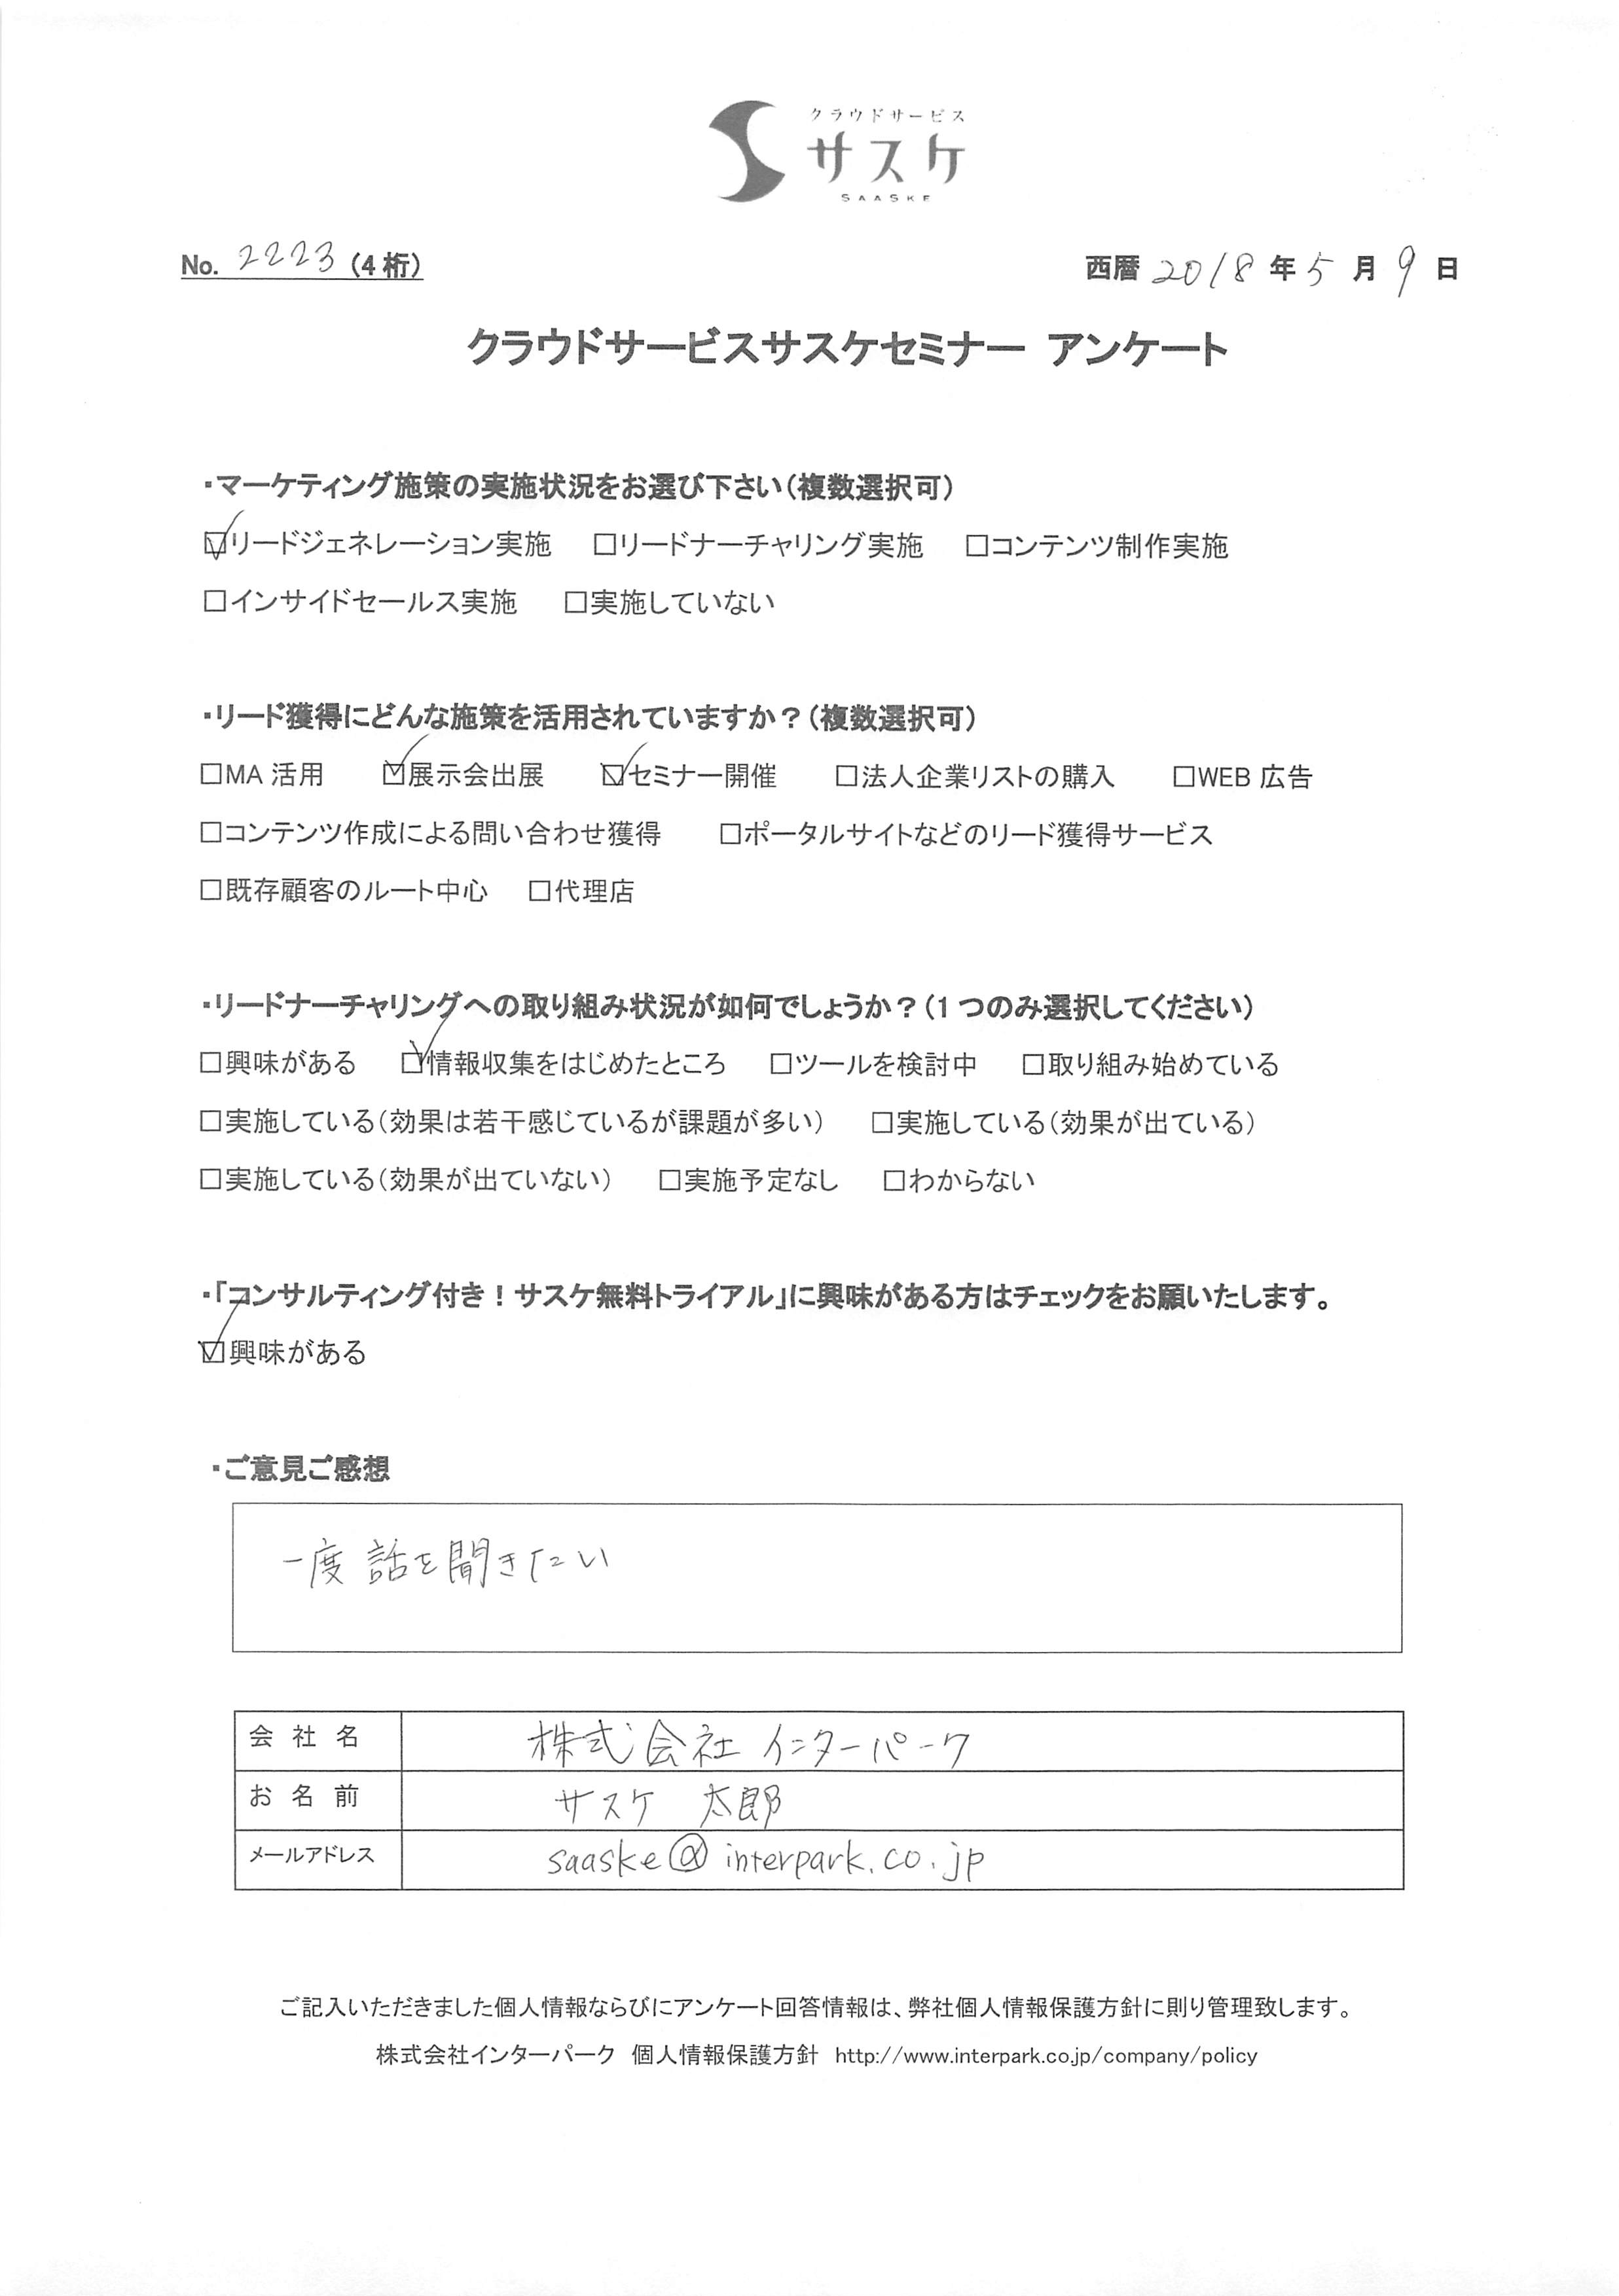 クラウドサービス
サスケ
SAASKE
No. 2223 (4桁)
西暦 2018 年 5 月 9 日
クラウドサービスサスケセミナー アンケート
・マーケティング施策の実施状況をお選び下さい(複数選択可)
☑リードジェネレーション実施 □リードナーチャリング実施 □コンテンツ制作実施
□インサイドセールス実施 □実施していない
・リード獲得にどんな施策を活用されていますか?(複数選択可)
□MA 活用 ☑展示会出展 ☑セミナー開催 □法人企業リストの購入 □WEB 広告
□コンテンツ作成による問い合わせ獲得 □ポータルサイトなどのリード獲得サービス
□既存顧客のルート中心 □代理店
・リードナーチャリングへの取り組み状況が如何でしょうか?(1 つのみ選択してください)
□興味がある ☑情報収集をはじめたところ □ツールを検討中 □取り組み始めている
□実施している(効果は若干感じているが課題が多い) □実施している(効果が出ている)
□実施している(効果が出ていない) □実施予定なし □わからない
・「コンサルティング付き!サスケ無料トライアル」に興味がある方はチェックをお願いたします。
☑興味がある
・ご意見ご感想
一度話を聞きたい
会社名 株式会社インターパーク
お名前 サスケ 太郎
メールアドレス saaske@interpark.co.jp
ご記入いただきました個人情報ならびにアンケート回答情報は、弊社個人情報保護方針に則り管理致します。
株式会社インターパーク 個人情報保護方針 http://www.interpark.co.jp/company/policy